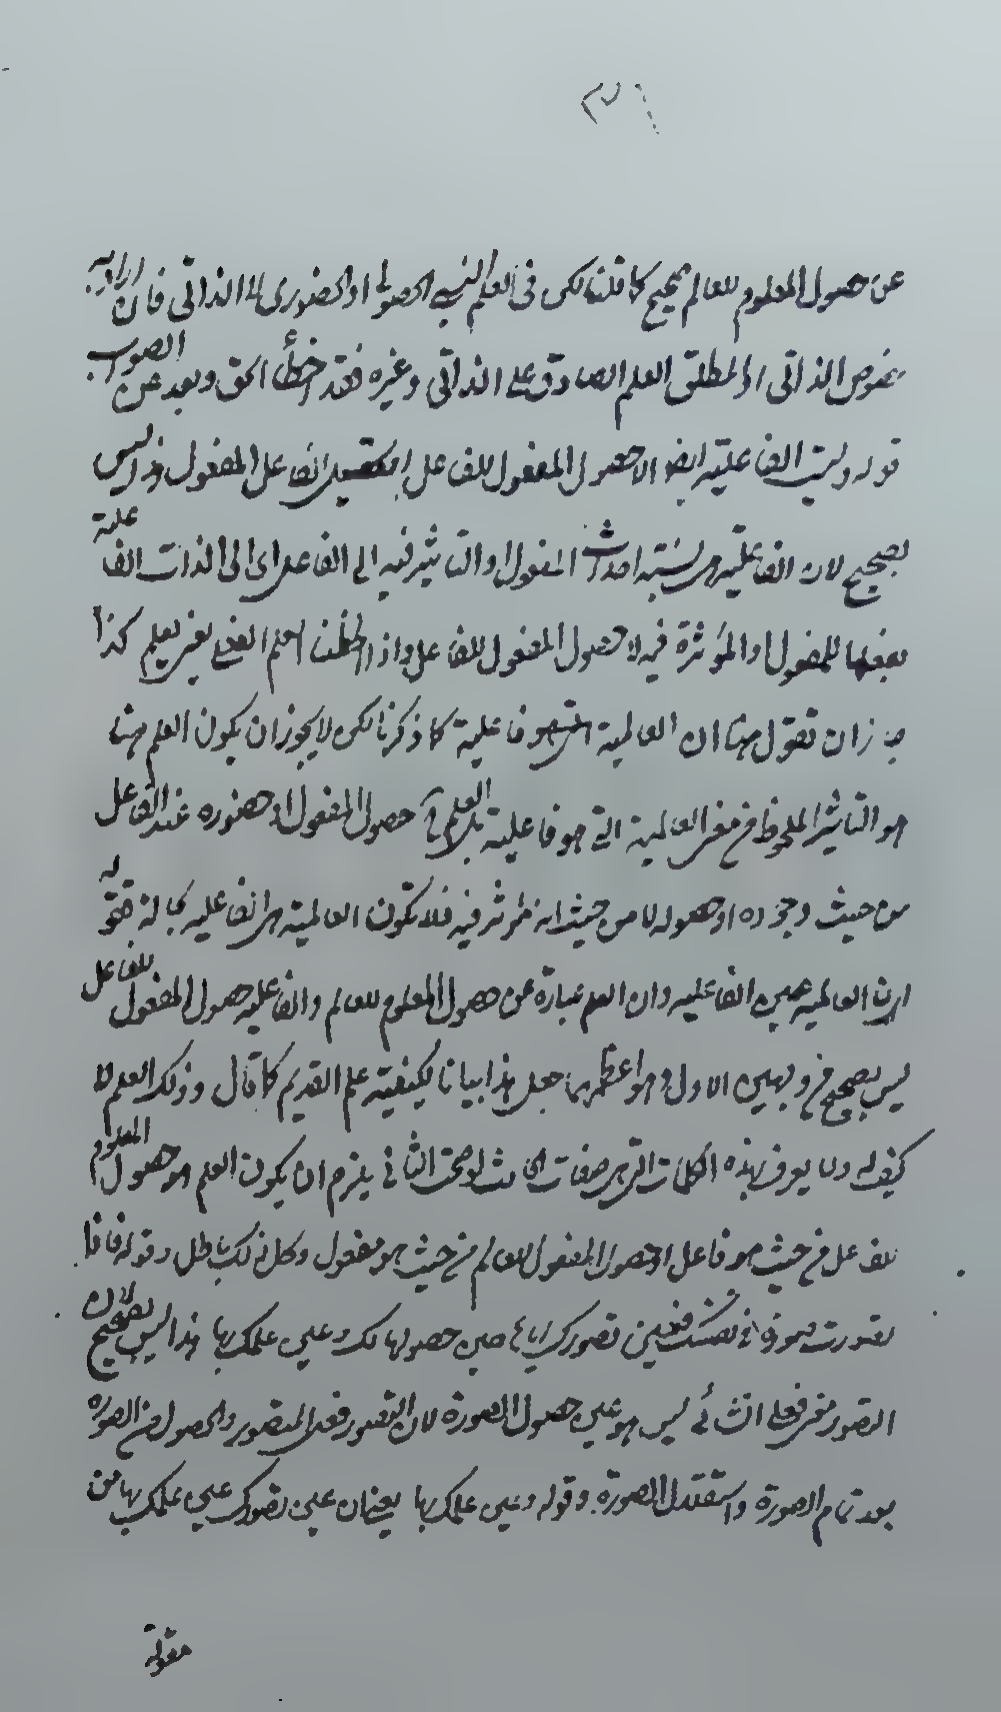 عن حصول المعلوم للعالم صحيح كما قلنا لكن في العلم النسبي الحصولي او الحضوري لا الذاتي فان اراد به
خصوص الذاتي او المطلق العلم الصادق على الذاتي وغيره فقد اخطأ الحق وبعد عن الصواب
قوله وليست الفاعلية ايضا الا حصول المفعول للفاعل الفاعل المفعول هذا ليس
بصحيح لان الفاعلية هي نسبة احداث المفعول او التأثير فيه الى الفاعل اي الى الذات الفاعلة
بفعلها للمفعول او المؤثرة فيه لا حصول المفعول للفاعل واذا اطلقنا العلم الفعلي بغير تعليم كذا
جاز ان نقول هنا ان العالمية فاعلية كما ذكرنا لكن لا يجوز ان يكون العلم هنا
هو التأثير الملحوظ من معنى العالمية التي هو فاعلية بل العلم حصول المفعول او حضوره عند الفاعل
من حيث وجوده او حصوله لا من حيث انه مؤثر فيه فلا تكون العالمية هي الفاعلية بحال فقوله
ان العالمية عين الفاعلية وان العلم عبارة عن حصول المعلوم للعالم والفاعلية حصول المفعول للفاعل
ليس بصحيح من وجهين الاول وهو اعظمهما جعل هذا بيانا لكيفية علم القديم كما قال وذلك العلم لا
كيف له ولا يعرف بهذه الكلمات التي هي صفات الحادث لوضحت الثاني يلزم ان يكون العلم هو حصول المعلوم
للفاعل من حيث هو فاعل او حصول المفعول للعالم من حيث هو مفعول وكل ذلك باطل وقوله فاذا
تصورت صورة في نفسك فعين تصورك اياها عين حصولها لك وعين علمك بها هذا ليس بصحيح لان
التصور معنى فعلي انشائي ليس هو عين حصول الصورة لان التصور فعل المتصور والحصول من الصورة
بعد تمام الصورة واستقلال الصورة وقوله وعين علمك بها يعني ان عين تصورك عين علمك بها من
مقولة